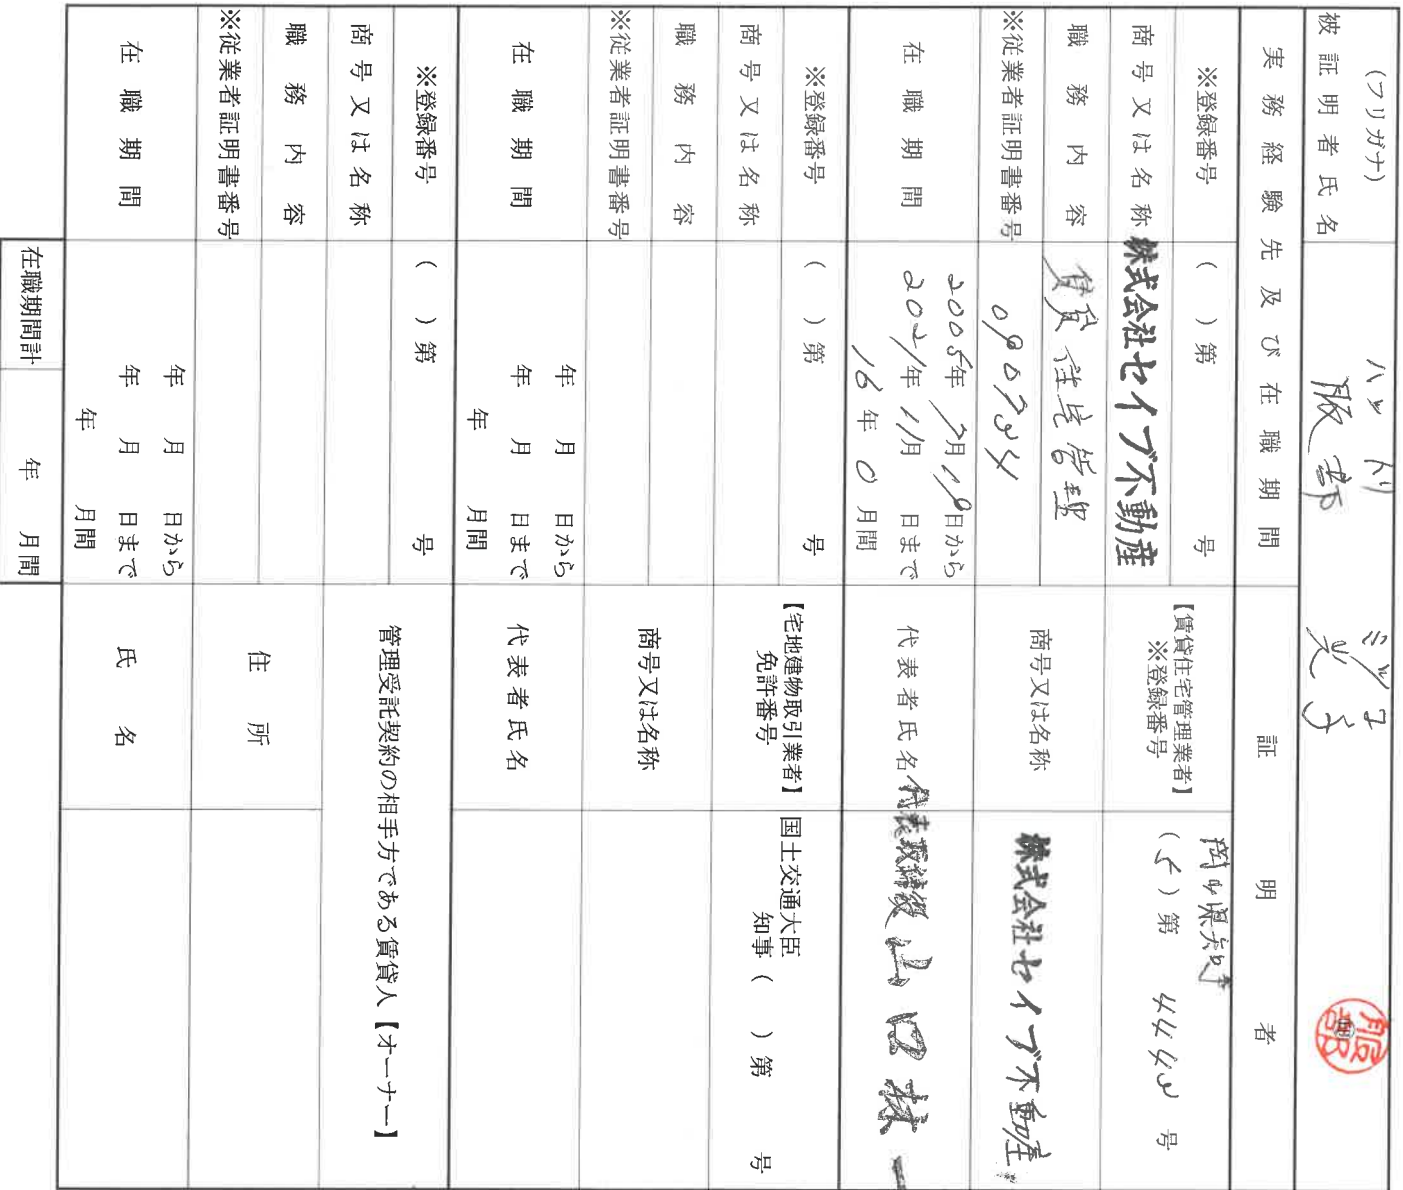 (フリガナ) ハットリ ミツ子
被証明者氏名 服部 光子 服部
実務経験先及び在職期間
証明者
※登録番号 ( )第 号
商号又は名称 株式会社セイブ不動産
職務内容 賃貸住宅管理
※従業者証明書番号 090734
在職期間
2005年7月19日から
2021年11月 日まで
16年0月間
【賃貸住宅管理業者】
※登録番号
岡山県知事
(5)第 4443 号
商号又は名称 株式会社セイブ不動産
代表者氏名 代表取締役 山口 政一
※登録番号 ( )第 号
商号又は名称
職務内容
※従業者証明書番号
在職期間
年 月 日から
年 月 日まで
年 月間
【宅地建物取引業者】
免許番号
国土交通大臣
知事( )第 号
商号又は名称
代表者氏名
※登録番号 ( )第 号
商号又は名称
職務内容
※従業者証明書番号
在職期間
年 月 日から
年 月 日まで
年 月間
管理受託契約の相手方である賃貸人【オーナー】
住所
氏名
在職期間計 年 月間